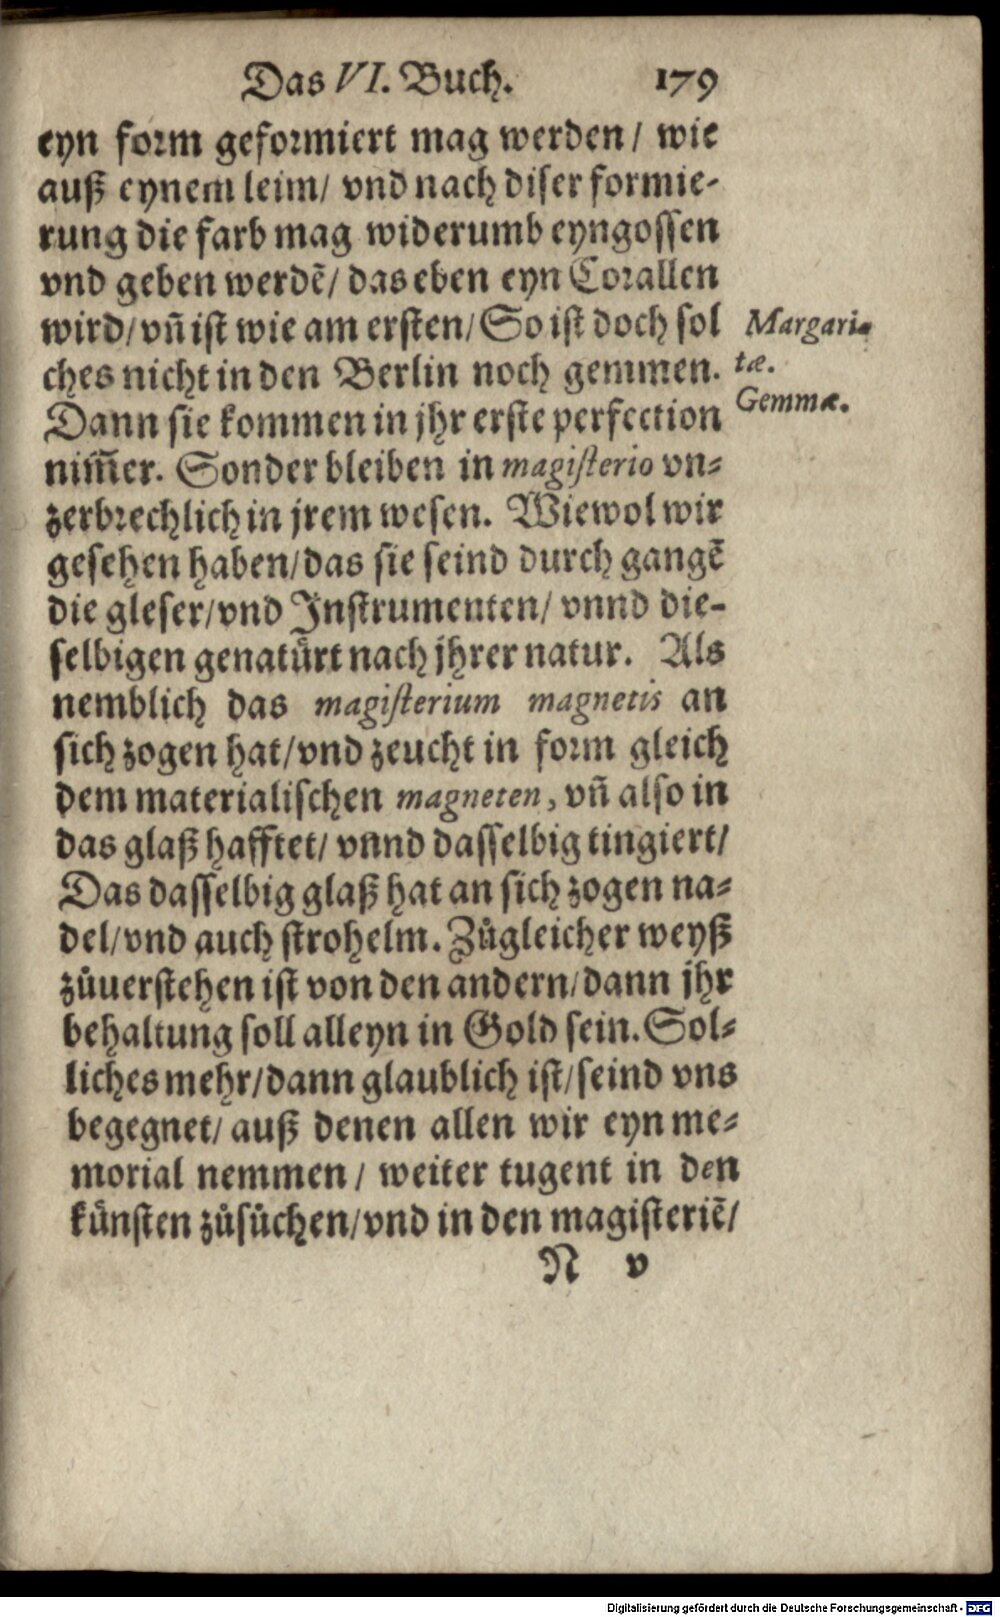 Das VI. Buch. 179
eyn form geformiert mag werden/ wie
auß eynem leim/ vnd nach diser formie-
rung die farb mag widerumb eyngossen
vnd geben werdẽ/ das eben eyn Corallen
wird/ vñ ist wie am ersten/ So ist doch sol
ches nicht in den Berlin noch gemmen.
Dann sie kommen in jhr erste perfection
nim̃er. Sonder bleiben in magisterio vn-
zerbrechlich in jrem wesen. Wiewol wir
gesehen haben/ das sie seind durch gangẽ
die gleser/ vnd Instrumenten/ vnnd die-
selbigen genatürt nach jhrer natur. Als
nemblich das magisterium magnetis an
sich zogen hat/ vnd zeucht in form gleich
dem materialischen magneten, vñ also in
das glaß hafftet/ vnnd dasselbig tingiert/
Das dasselbig glaß hat an sich zogen na-
del/ vnd auch strohelm. Zůgleicher weyß
zůuerstehen ist von den andern/ dann jhr
behaltung soll alleyn in Gold sein. Sol-
liches mehr/ dann glaublich ist/ seind vns
begegnet/ auß denen allen wir eyn me-
morial nemmen/ weiter tugent in den
künsten zůsůchen/ vnd in den magisteriẽ/
N v
Margari-
tæ.
Gemmæ.
Digitalisierung gefördert durch die Deutsche Forschungsgemeinschaft - DFG